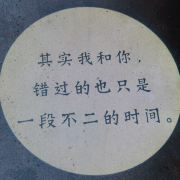 其实我和你，
错过的也只是
一段不二的时间。